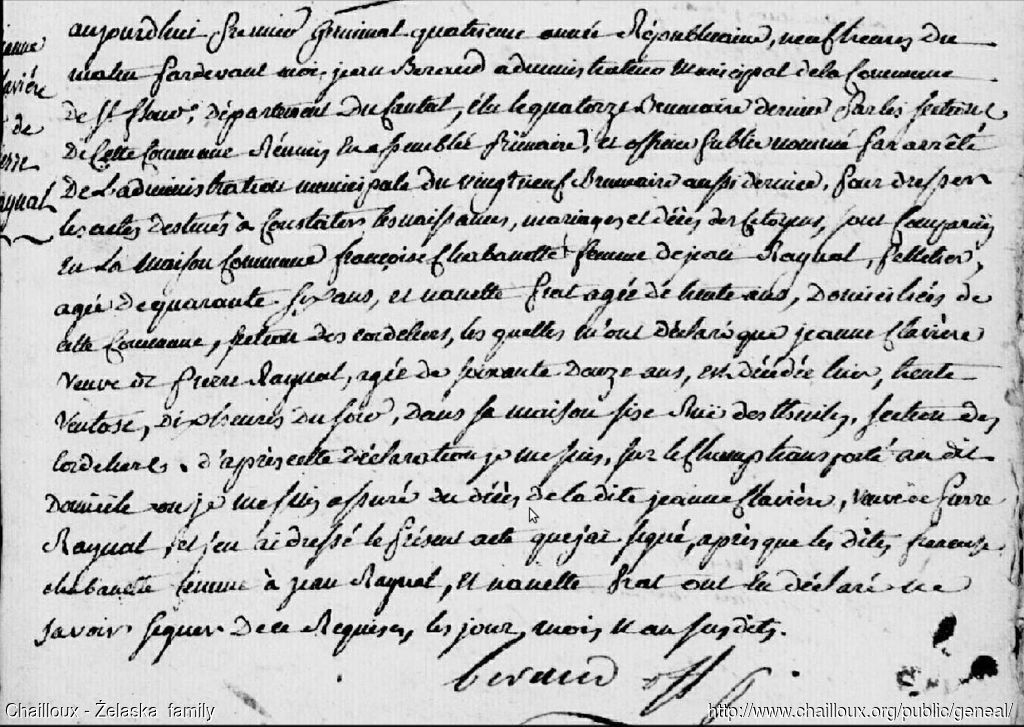 aujourdhui premier Germinal quatrieme année Républicaine, neuf heures du
matin pardevant moi jean Beraud administrateur Municipal de la Commune
de St flour, département du Cantal, élu le quatorze Brumaire dernier Par les sections
De Cette Commune Réunies En assemblée primaire, et officier public nommé par arrêté
De L'administration municipale du vingt neuf Brumaire aussi dernier, pour dresser
les actes destinés à Constater les naissances, mariages et décès des Citoyens, sont Comparües
En La Maison Commune françoise Chabanette femme de jean Raynal, Pelletier,
agée De quarante six ans, et nanette prat agée de trente ans, Domiciliées de
cette Commune, section des cordeliers, les quelles m'ont déclaré que jeanne Clavière
Veuve de pierre Raynal, agée de soixante Douze ans, est décédée hier, trente
Ventose, Dix heures Du soir, Dans sa maison sise Rüe des thuiles, section des
Cordeliers. d'après cette Déclaration je me suis, sur le Champ transporté au dit
Domicile ou je me suis assuré du décès de la dite jeanne Clavière, Veuve de pierre
Raynal, et j'en ai dressé le présent acte que j'ai signé, après que les dites francoise
chabanette femme à jean Raynal, et nanette prat ont eu déclaré ne
savoir signer De ce Requises, les jour, mois et an susdits.
beraud off p
jeanne
Clavière
de
pierre
Raynal
Chailloux - Želaska family
http://www.chailloux.org/public/geneal/